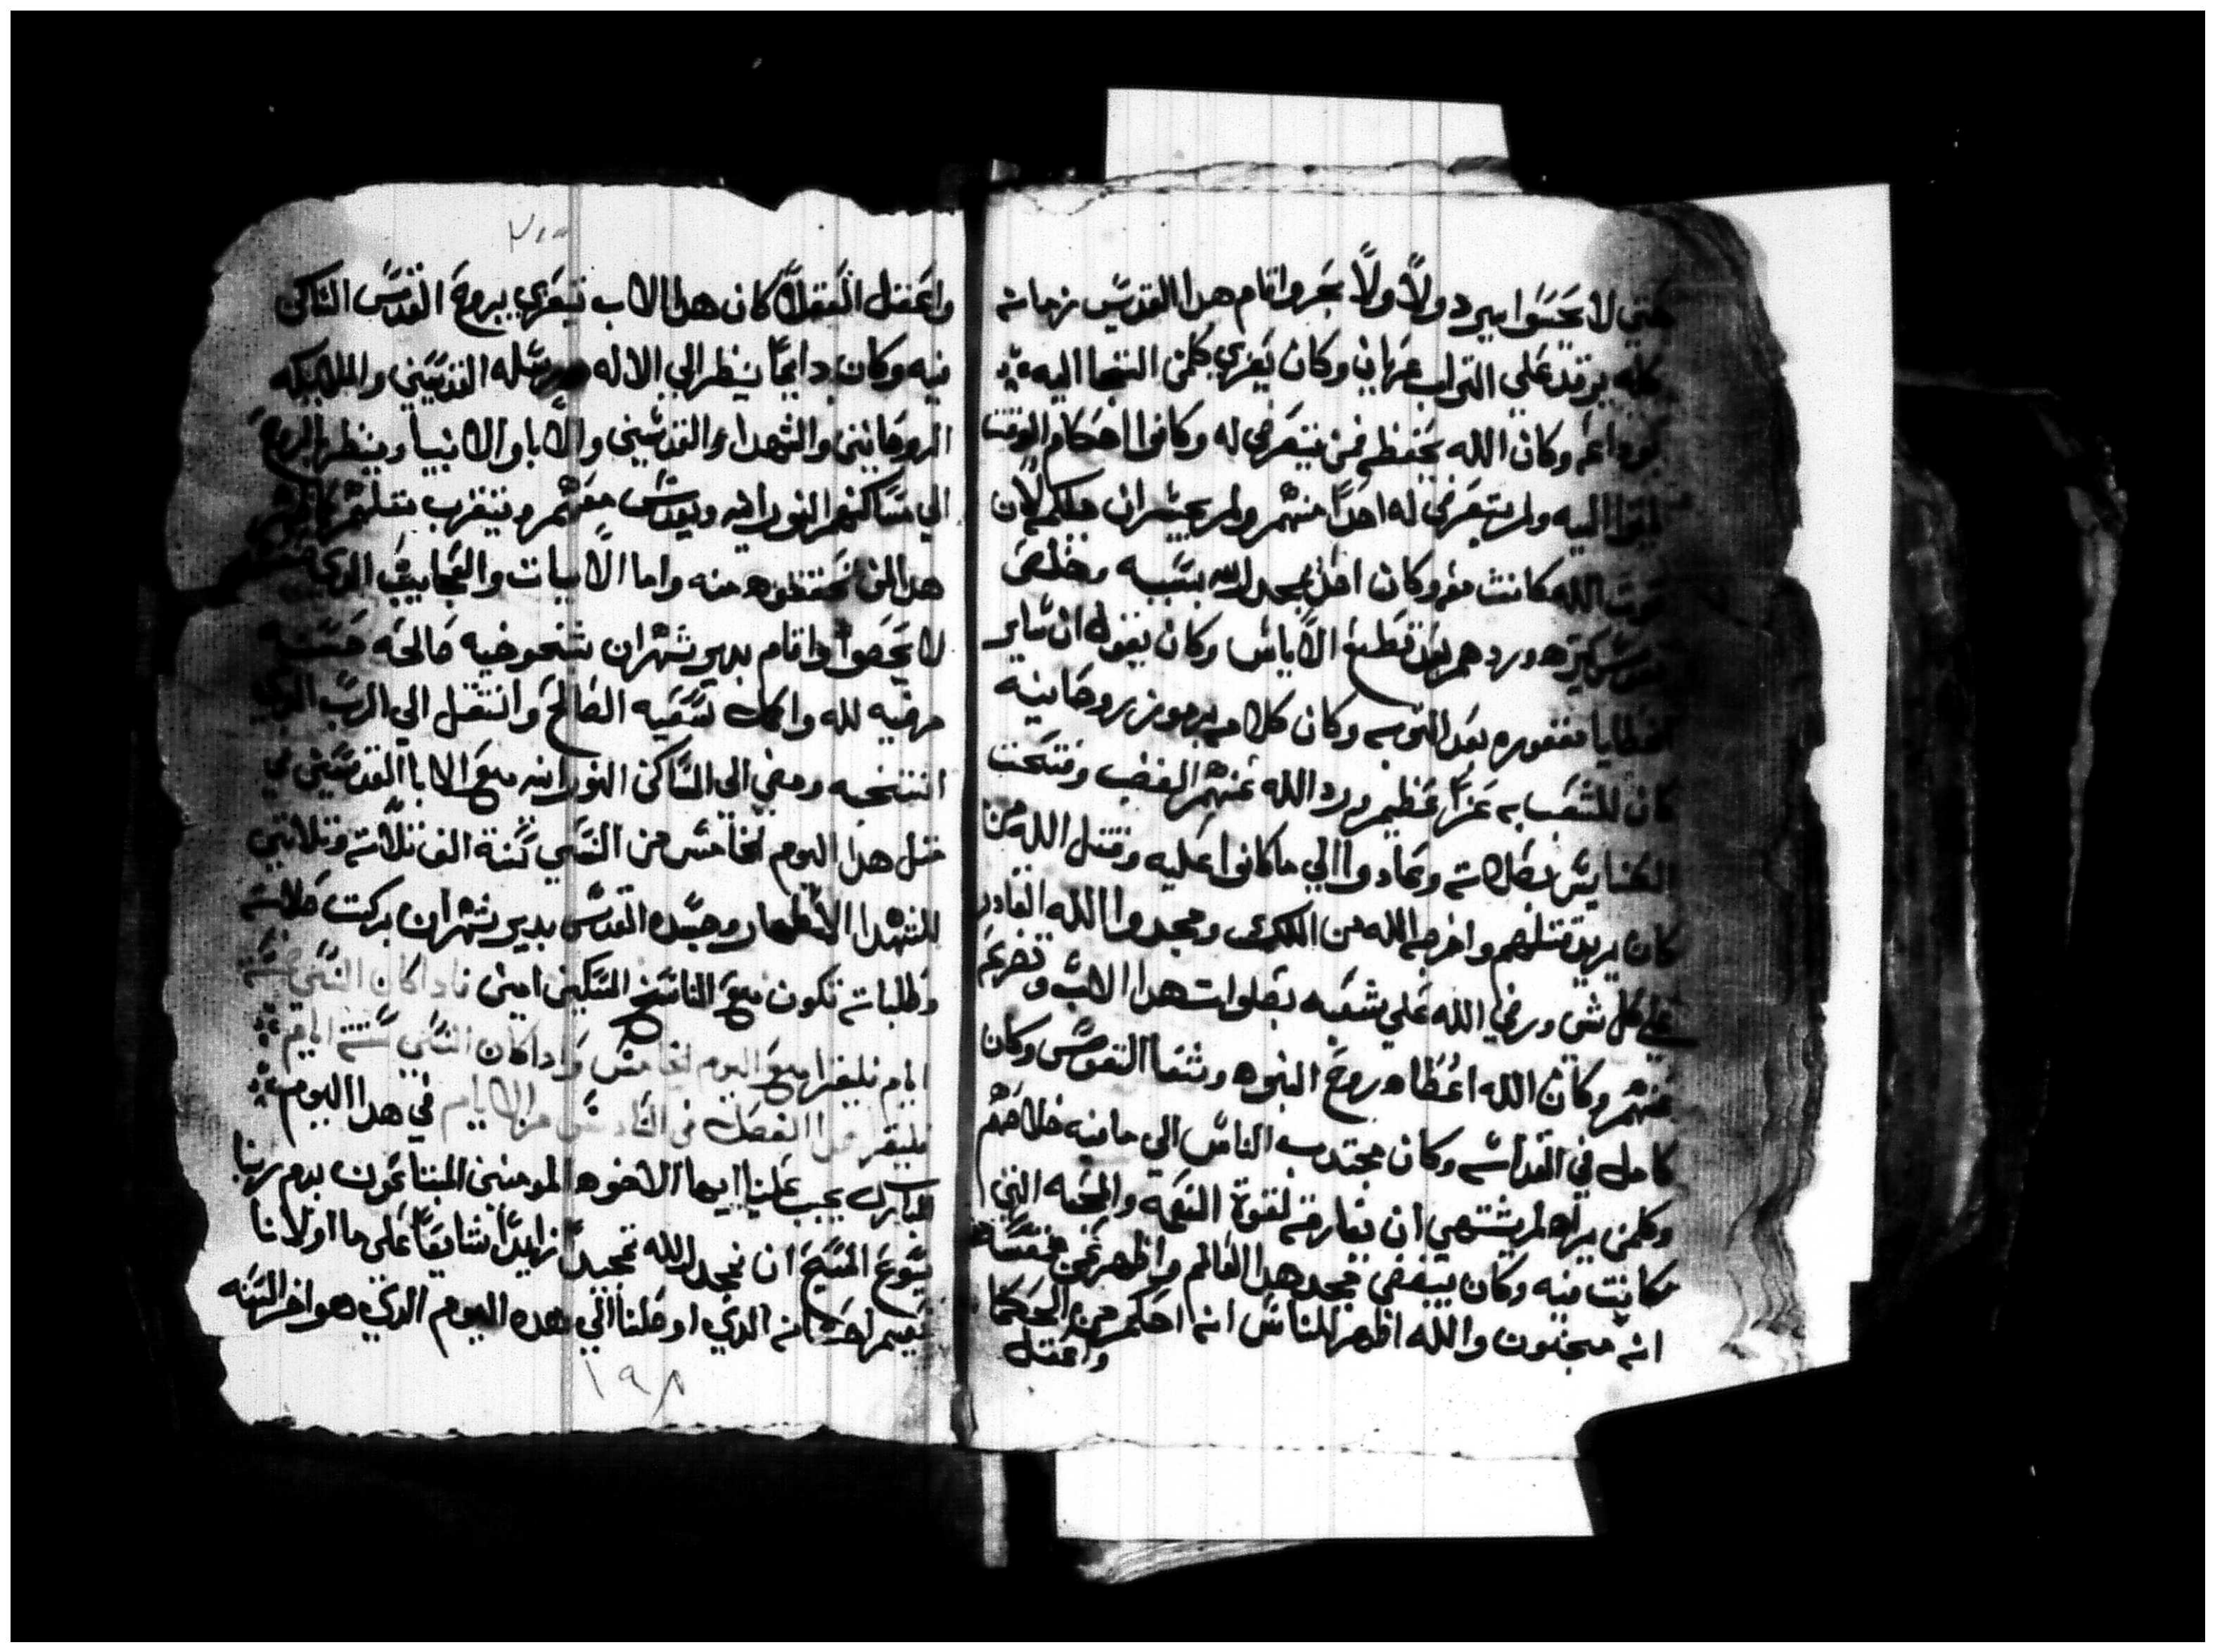 حتي لا يحسوا ببرد ولاً ولاً بحر واقام هدا القديس زمانه
كله يرقد علي التراب عريان وكان يعزي كلمن التجا اليه
وكان الله يحفظه فمن يتعرض له وكانوا احكام الوقت
اليه ولم يتعرض له احداً منهم ولم يجسران يكلمه لان
قوت الله كانت معه وكان اقل بمجد الله بسببه وخلص
نفوس كثيره وردهم بعد قطع الاياس وكان يقول ان ساير
الخطايا مغفوره بعد التوبه وكان كلامه برموز روحانيه
كان للشعب به عزاً عظيم ورد الله عنهم الغضب وفتحت
الكنايس بصلاته وعادوا الي ماكانوا عليه وقتل الله من
كان يريد قتلهم واخرجه الله من الملك ومجدوا الله القادر
علي كل شي ورضي الله علي شعبه بصلوات هدا الاب وتضرعه
عنهم وكان الله اعطاه روح النبوه وشفا النفوس وكان
كامل في القداسه وكان يجتدب الناس الي مافيه خلاصهم
وكلمن يراه لم يشتهي ان يفارقه لقوة النعمه والمحبه التي
كانت فيه وكان يبغض مجد هدا العالم واظهر عن نفسه
انه مجنون والله اظهر للناس انه احكم من الحكما
واعقل
٢٠٠
واعقل العقلا كان هدا الاب يتعزي بروح القدس الساكن
فيه وكان دايماً ينظر الي الاله ورسله القديسين والملايكه
الروحانين والشهدا والقديسين والابا والانبيا وينظر
الي مساكنهم النورانيه ويقدس معهم ويتقرب مثلهم
هدا الدي تحققوه منه واما الايات والعجايب الدي
لا يحصوا واقام بدير شهران شيخوخيه صالحه حسنه
مرضيه لله واكمل سعيه الصالح وانتقل الي الرب الدي
انتخبه ومضي الي المساكن النورانيه مع الابا القديسين في
مثل هدا اليوم الخامس من النسي سنة الف تلاته وتلاتين
للشهدا الاطهار وجسده القدس بدير شهران بركت صلاته
وطلباته تكون مع الناسخ المسكين امين فادا كان النسي خمسة
ايام فليقرا مع اليوم الخامس وادا كان النسي ستة ايام
فليقرا هدا الفصل في السادس من الايام في هدا اليوم
المبارك يجب علينا ايها الاخوه المومنين المبتاعون بدم ربنا
يسوع المسيح ان نمجد الله تمجيداً زايداً شايعاً علي ما اولانا
بعميم احسانه الدي اوصلنا الي هده اليوم الدي هو اخر السنه
١٩٨